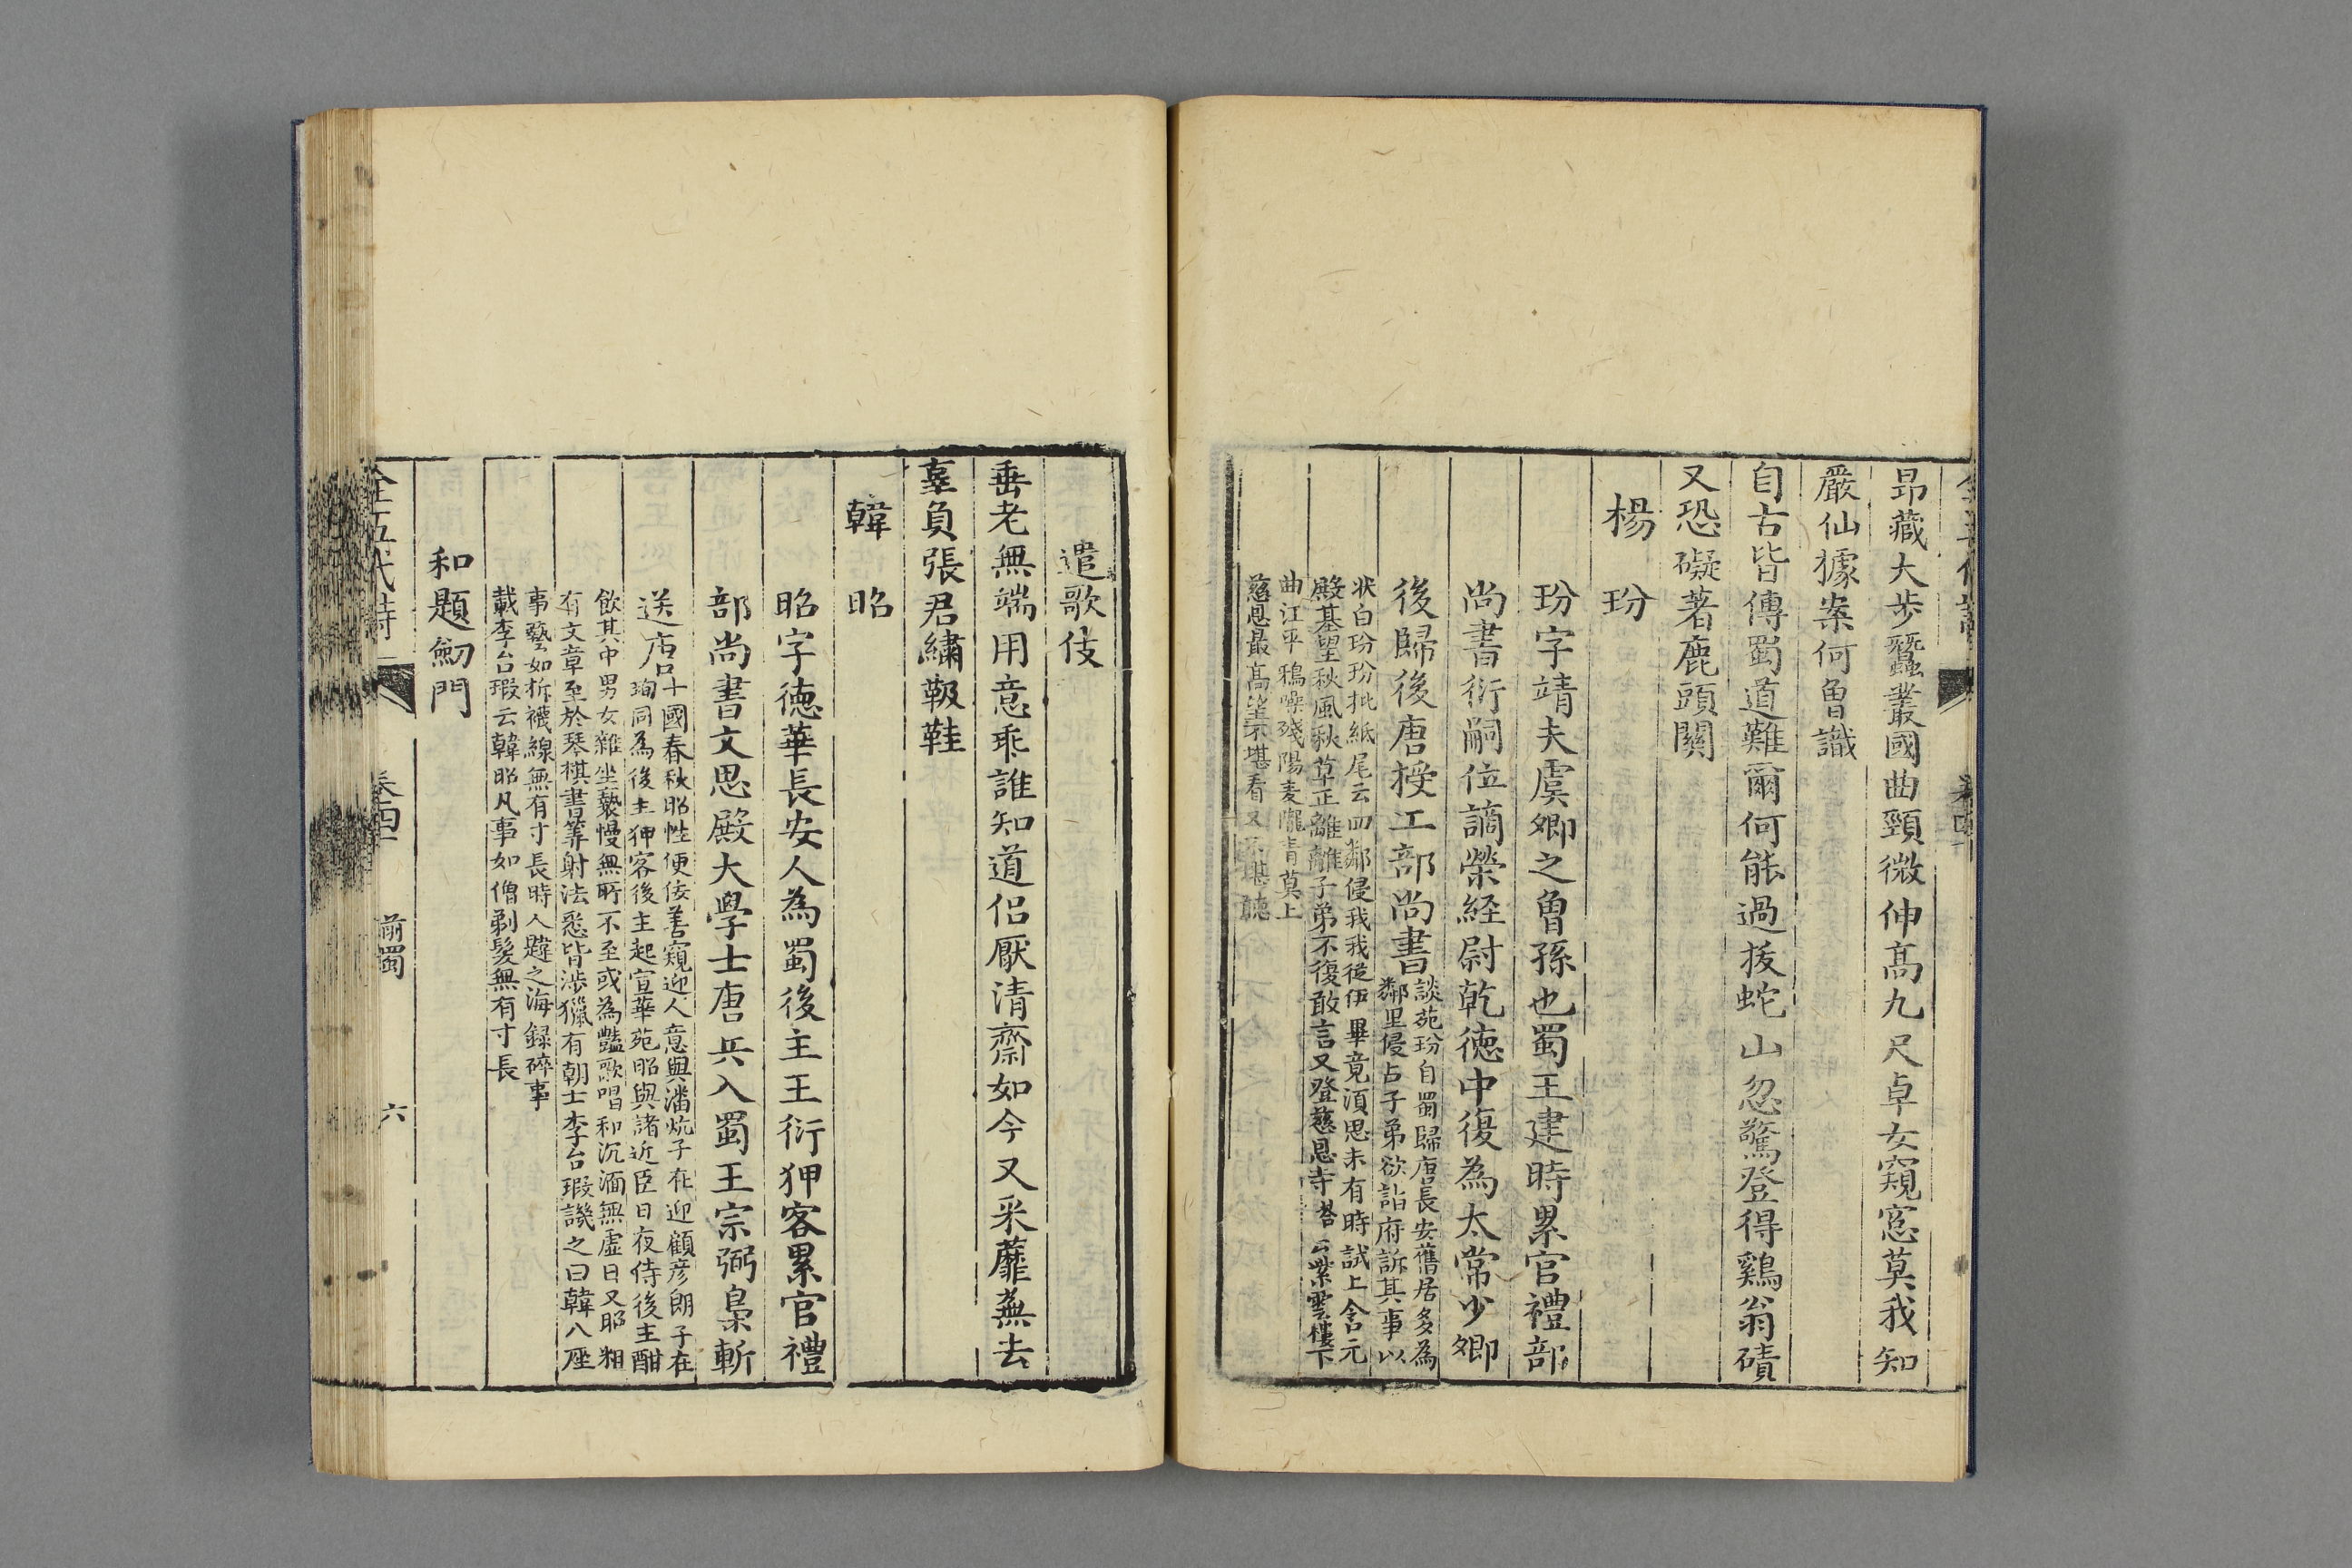 昂藏大步蠶叢國曲頸微伸高九尺卓女窺窻莫我知
嚴仙據案何曾識
自古皆傳蜀道難爾何能過拔蛇山忽驚登得鷄翁磧
又恐礙著鹿頭關
楊玢
玢字靖夫虞卿之曾孫也蜀王建時累官禮部
尚書衍嗣位謫榮経尉乾徳中復為太常少卿
後歸後唐授工部尚書
談苑玢自蜀歸唐長安舊居多為
鄰里侵占子弟欲詣府訴其事以
狀白玢玢批紙尾云四鄰侵我我從伊畢竟須思未有時試上含元
殿基望秋風秋草正離離子弟不復敢言又登慈恩寺塔云紫雲樓下
曲江平鴉噪殘陽麦隴青莫上
慈恩最髙望不堪看又不堪聽
遣歌伎
垂老無端用意乖誰知道侶厭清齋如今又采蘼蕪去
辜負張君繡靸鞋
韓昭
昭字徳華長安人為蜀後主王衍狎客累官禮
部尚書文思殿大學士唐兵入蜀王宗弼梟斬
送唐
十國春秋昭性便佞善窺迎人意與潘炕子在迎顧彦朗子在
珣同為後主狎客後主起宣華苑昭與諸近臣日夜侍後主酣
飲其中男女雜坐褻慢無所不至或為豔歌唱和沉湎無虛日又昭粗
有文章至於琴棋書筭射法悉皆涉獵有朝士李台瑕譏之曰韓八座
事藝如拆襪線無有寸長時人韙之海録碎事
載李台瑕云韓昭凡事如僧剃髮無有寸長
和題劒門
全五代詩
卷四十
前蜀
六